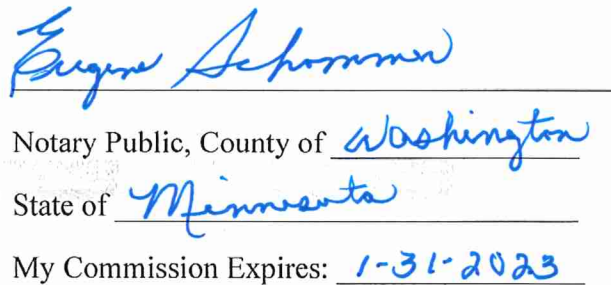 Eugene Schommer
Notary Public, County of Washington
State of Minnesota
My Commission Expires: 1-31-2023